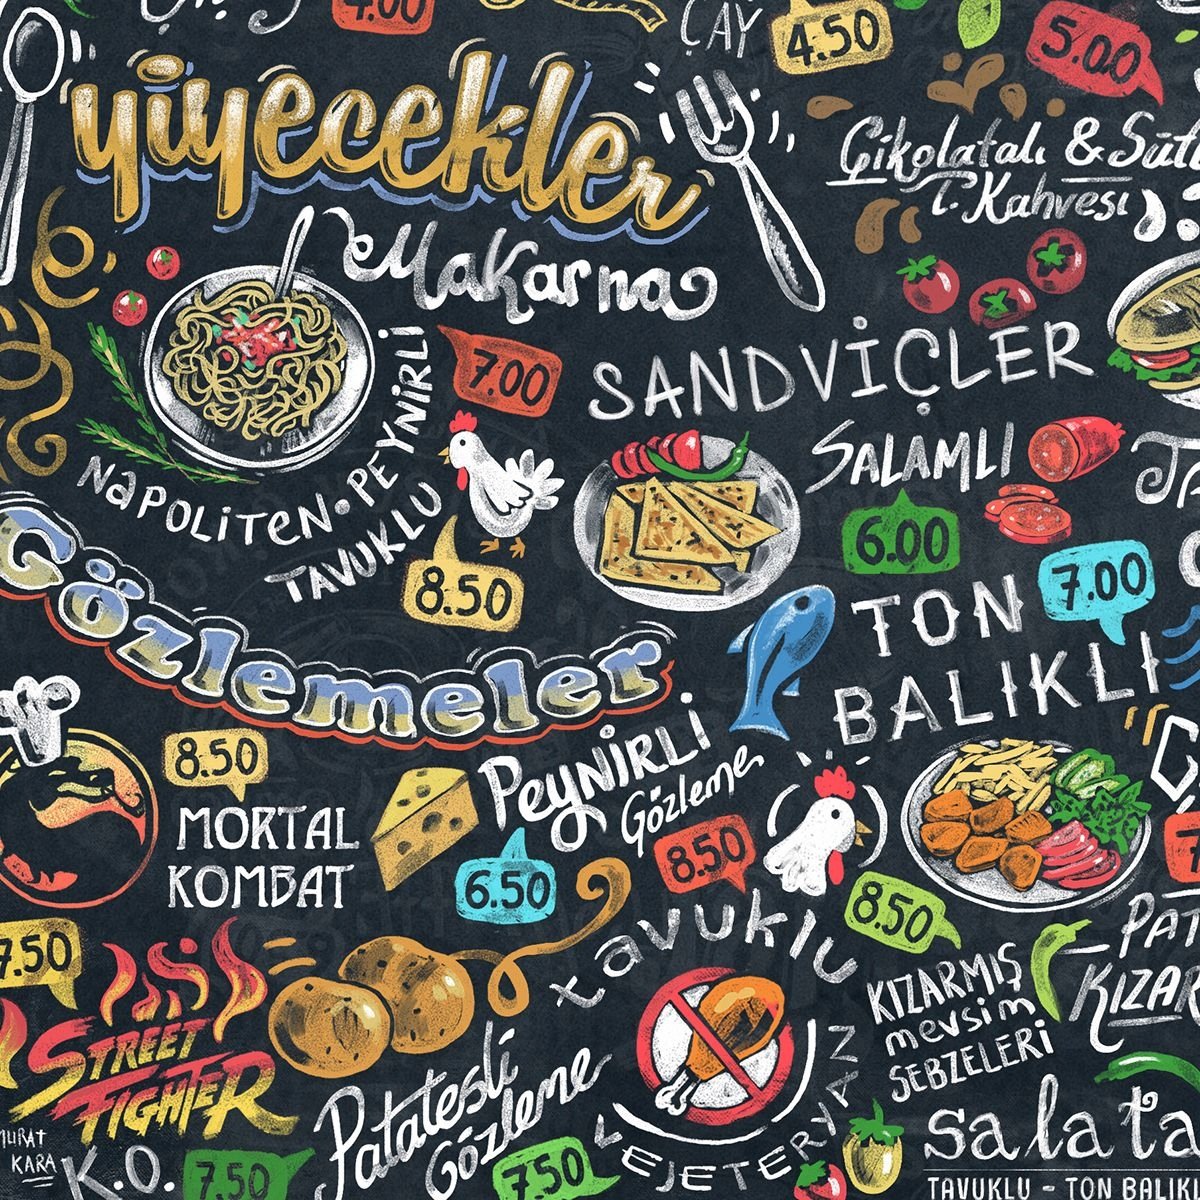 4.00
ÇAY
4.50
5.00
yiyecekler
Çikolatalı & Süt
T. Kahvesi
Makarna
7.00
NAPOLİTEN • PEYNİRLİ
TAVUKLU
8.50
SANDVİÇLER
SALAMLI
6.00
TON
BALIKLI
7.00
Gözlemeler
8.50
MORTAL
KOMBAT
PEYNİRLİ
Gözleme
6.50
8.50
tavuklu
8.50
KIZARMIŞ
mevsim
SEBZELERİ
PAT
KIZAR
7.50
STREET
FIGHTER
MURAT
KARA
K.O.
7.50
Patatesli
Gözleme
7.50
VEJETERYAN
salata
TAVUKLU - TON BALIKL